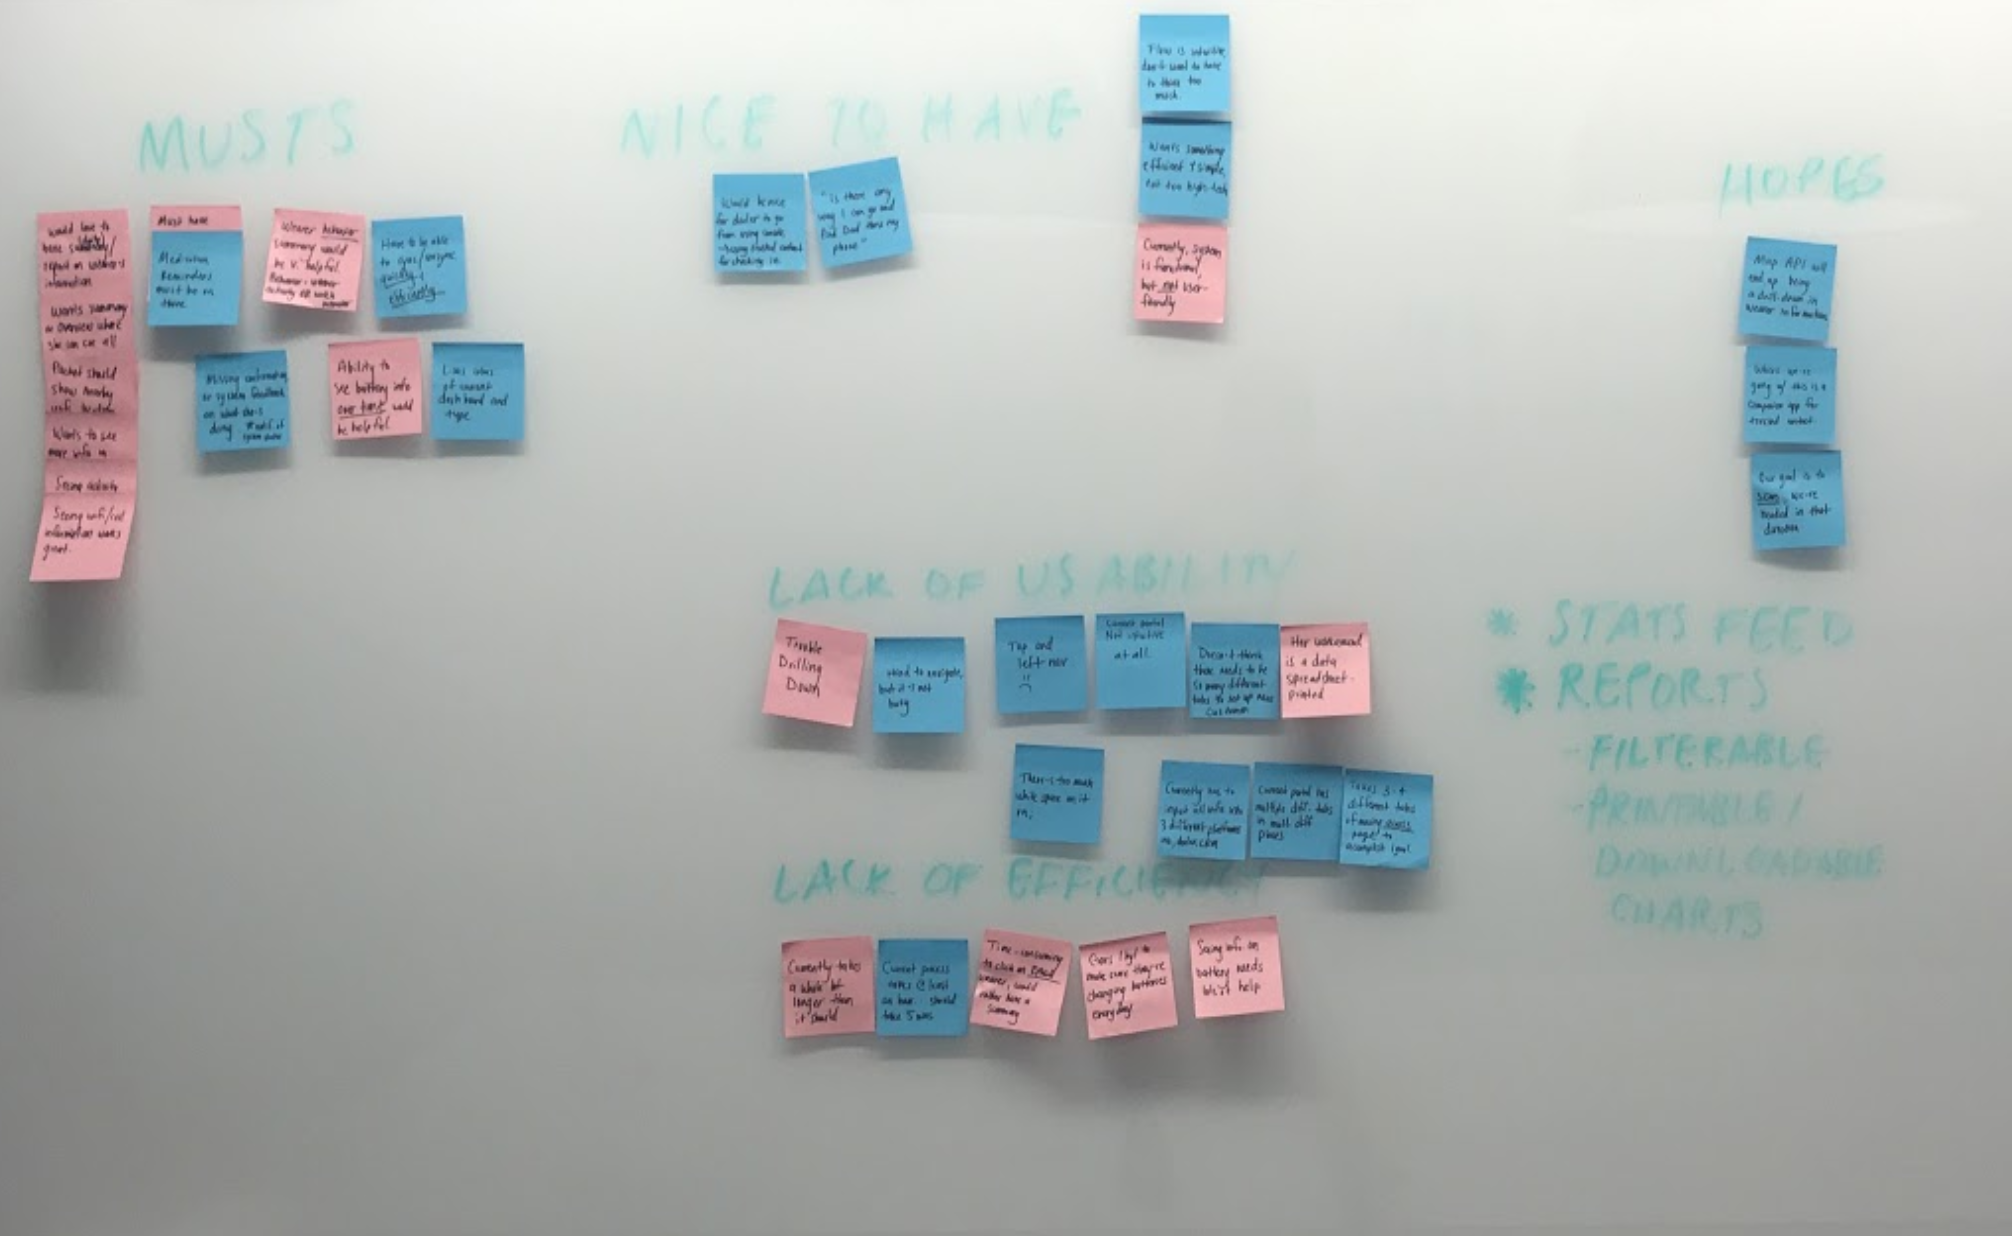 MUSTS
would love to
have summary/
report on wearer's
information
Wants summary
or overview where
she can see all
Packet should
show nearby
wifi
Wants to see
more info in
Seeing activity
Seeing wifi/cell
information was
great.
Must have
Medication
Reminders
must be in
there
Wearer behavior
summary would
be v. helpful.
Have to be able
to sync/unsync
quickly &
efficiently
Missing confirmation
or system feedback
on what she's
doing
Ability to
see battery info
over time would
be helpful
Likes idea
of current
dashboard and
type
NICE TO HAVE
Would be nice
for dealer to go
from using
trusted contact
for checking in
"is there any
way I can go and
find Dad thru my
phone"
Flow is intuitive,
don't want to have
to think too
much.
Wants something
efficient & simple,
not too high-tech
Currently, system
is functional,
but not user-
friendly
HOPES
Map API will
end up being
a drill-down in
wearer information
Where we're
going w/ this is a
companion app for
trusted contact
Our goal is to
we're
headed in that
direction
LACK OF USABILITY
Trouble
Drilling
Down
Hard to navigate,
but it's not
busy
Top and
left nav
Current portal
Not intuitive
at all
Doesn't think
there needs to be
so many different
tabs to set up new
customer
Her workload
is a data
spreadsheet -
printed
There's too much
white space on it
Currently has to
input all info via
3 different platforms
Current portal has
multiple diff. tabs
in mult. diff
places
Takes 3-4
different tabs
of moving across
pages to
accomplish 1 goal
LACK OF EFFICIENCY
Currently takes
a whole lot
longer than
it should
Current process
takes @ least
an hour. should
take 5 mins
Time-consuming
to click on EACH
wearer, would
rather have a
summary
make sure they're
changing batteries
everyday
Seeing info on
battery needs
help
* STATS FEED
* REPORTS
- FILTERABLE
- PRINTABLE /
DOWNLOADABLE
CHARTS